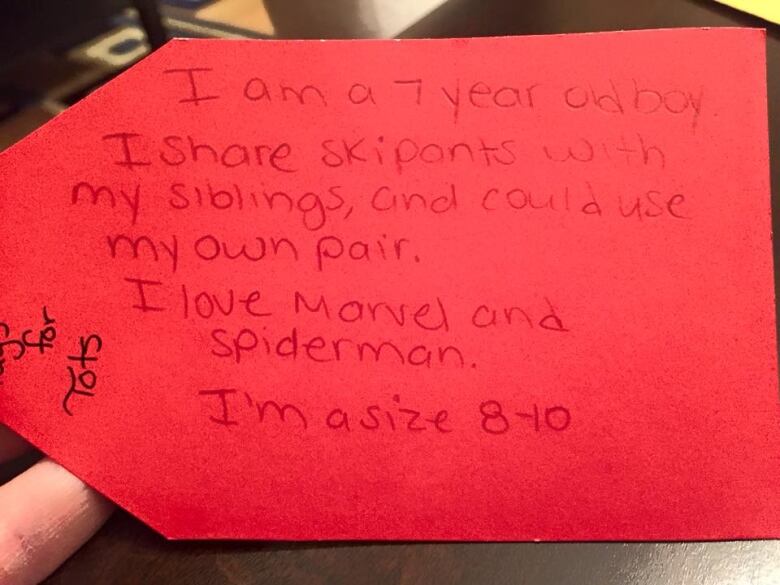 I am a 7 year old boy.
I share skipants with
my siblings, and could use
my own pair.
I love Marvel and
spiderman.
I'm a size 8-10
for
Tots